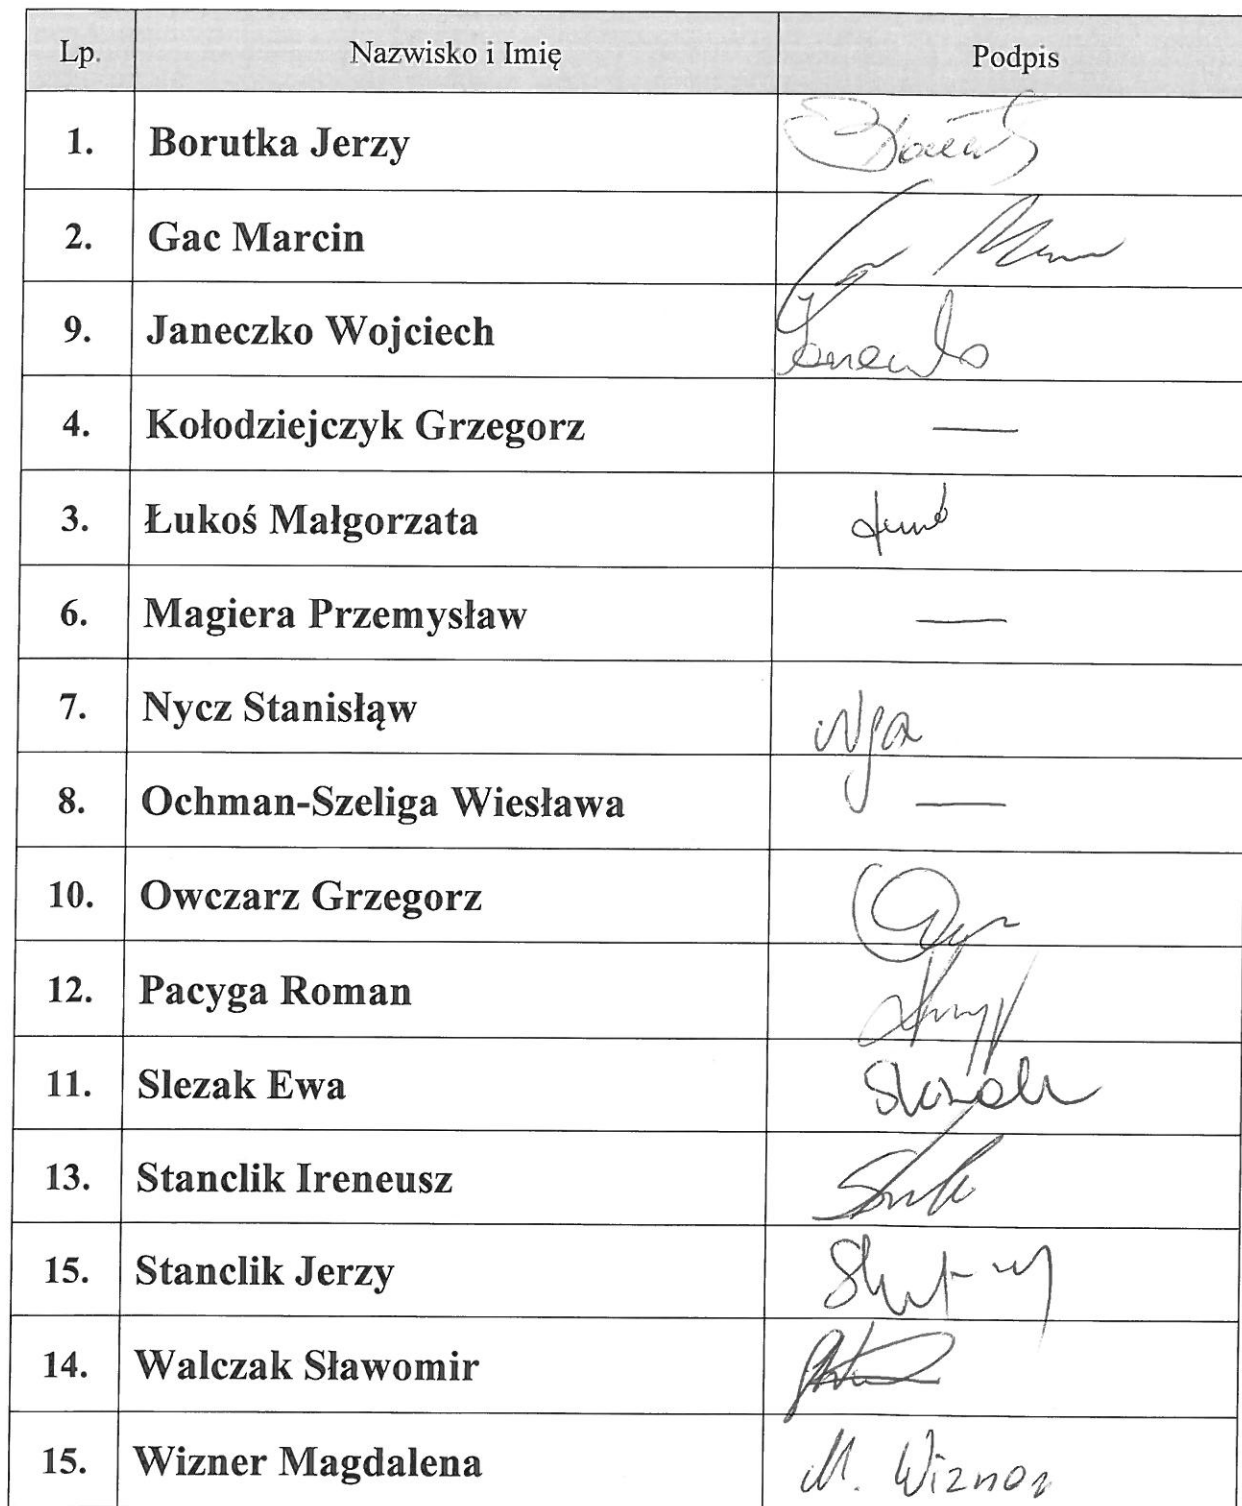 Lp. Nazwisko i Imię Podpis
1. Borutka Jerzy
2. Gac Marcin
9. Janeczko Wojciech
4. Kołodziejczyk Grzegorz —
3. Łukoś Małgorzata
6. Magiera Przemysław —
7. Nycz Stanisłąw
8. Ochman-Szeliga Wiesława —
10. Owczarz Grzegorz
12. Pacyga Roman
11. Slezak Ewa
13. Stanclik Ireneusz
15. Stanclik Jerzy
14. Walczak Sławomir
15. Wizner Magdalena M. Wizner